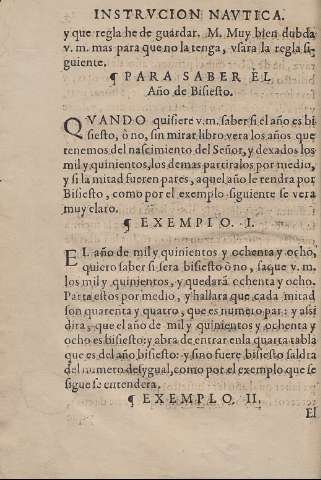 INSTRVCION NAVTICA.
y que regla he de guardar. M. Muy bien dubda
v. m. mas para que no la tenga, vsara la regla si-
guiente.
¶ PARA SABER EL
Año de Bisiesto.
QVANDO quisiere v. m. saber si el año es bi
siesto, ò no, sin mirar libro, vera los años que
tenemos del nascimiento del Señor, y dexados los
mil y quinientos, los demas partiralos por medio,
y si la mitad fueren pares, aquel año le rendra por
Bisiesto, como por el exemplo siguiente se vera
muy claro.
¶ EXEMPLO. I.
EL año de mil y quinientos y ochenta y ocho,
quiero saber si sera bisiesto ò no, saque v. m.
los mil y quinientos, y quedará ochenta y ocho.
Parta estos por medio, y hallara que cada mitad
son quarenta y quatro, que es numero par: y assi
dira, que el año de mil y quinientos y ochenta y
ocho es bisiesto: y abra de entrar enla quarta tabla
que es del año bisiesto: y sino fuere bisiesto saldra
del numero desygual, como por el exemplo que se
sigue se entendera.
¶ EXEMPLO. II.
El